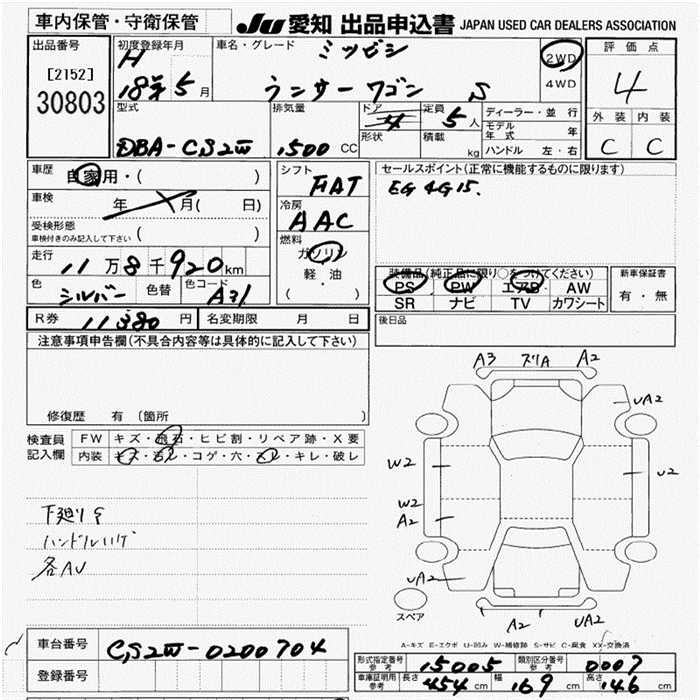 車内保管・守衛保管
JU 愛知 出品申込書 JAPAN USED CAR DEALERS ASSOCIATION
出品番号
[2152]
30803
初度登録年月
H
18年 5月
車名・グレード ミツビシ
ランサーワゴン S
2WD
4WD
評価点
4
外装 内装
C C
型式
DBA-CS2W
排気量
1500 CC
ドア
4
形状
定員
5人
積載
kg
ディーラー・並行
モデル年式 年
ハンドル 左・右
車歴 自家用・( )
車検 年 月( 日)
受検形態
車検付きのみ記入して下さい ( )
走行
11万8千920km
色 シルバー 色替 色コード A31
シフト
FAT
冷房
AAC
燃料
ガソリン
軽・油
( ・ )
セールスポイント(正常に機能するものに限ります)
EG 4G15.
装備品(純正品に限り○をつけてください)
PS PW エアB AW
SR ナビ TV カワシート
新車保証書
有・無
R券 11380円 名変期限 月 日
後日品
注意事項申告欄(不具合内容等は具体的に記入して下さい)
修復歴 有 (箇所 )
検査員記入欄
FW キズ・飛石・ヒビ割・リペア跡・X要
内装 キズ・汚れ・コゲ・穴・スレ・キレ・破レ
下廻りS
ハンドルハゲ
各AU
A3 スリA A2
UA2
W2
U2
W2
A2
UA2
A2
UA2
スペア
A-キズ E-エクボ U-凹み W-補修跡 S-サビ C-腐食 XX-交換済
車台番号 CS2W-0200704
登録番号
形式指定番号 参考 15005 類別区分番号 参考 0007
車庫証明用 参考 長さ 454 cm 幅 169 cm 高さ 146 cm